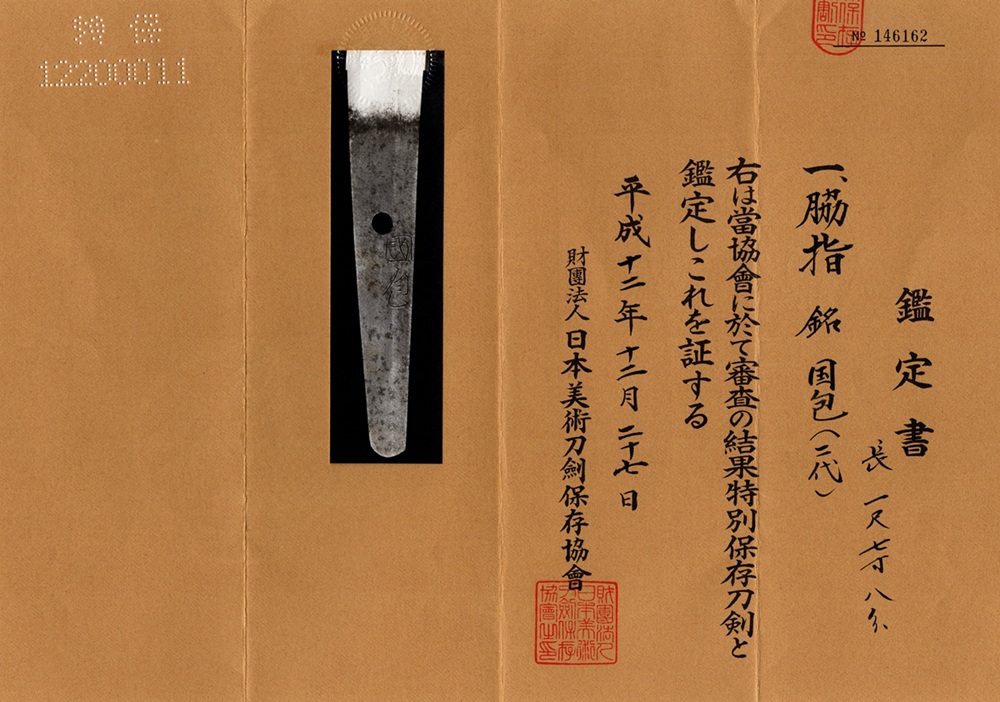 特保
12200011
№ 146162
鑑定書
長 一尺七寸八分
一、脇指 銘 国包(二代)
右は當協會に於て審査の結果特別保存刀剣と
鑑定しこれを証する
平成十二年十二月二十七日
財團法人 日本美術刀劍保存協會
財團法人
日本美術
刀劍保存
協會之印
國包